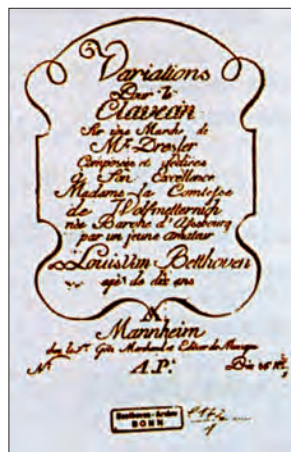 Variations
Pour le
Clavecin
Sur une Marche de
Mr. Dresler
Composées et dediées
à Son Excellence
Madame la Comtesse
de Wolfmetternich
née Baronne d'Assebourg
par un jeune amateur
Louis van Betthoven
agé de dix ans
A
Mannheim
chez le Sr. Götz Marchand et Editeur de Musique
No. A.P.
Beethoven-Archiv
BONN